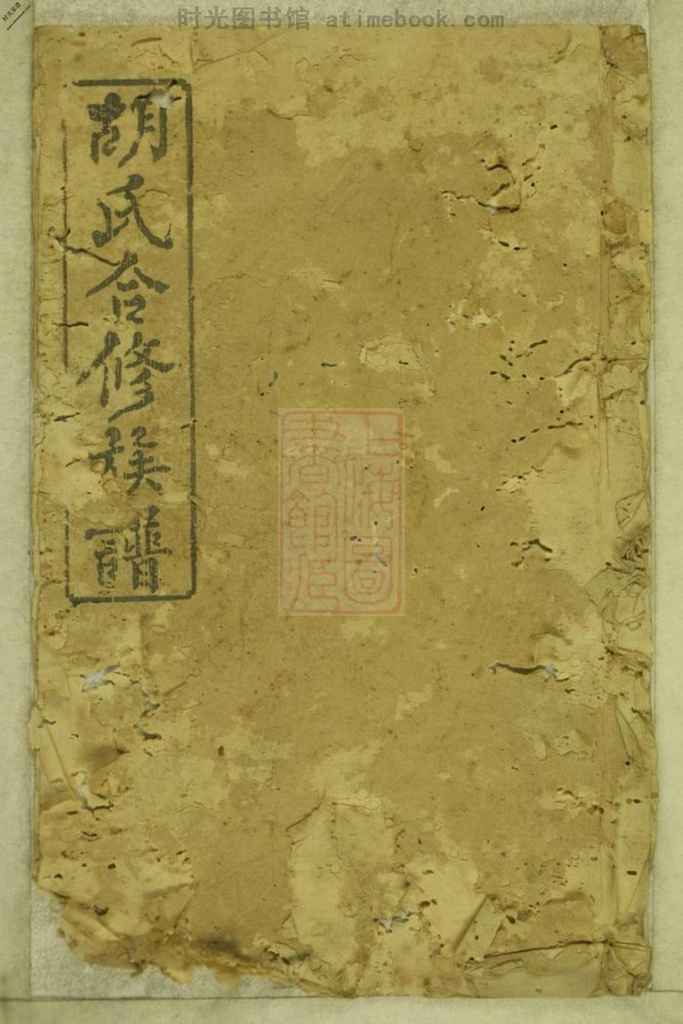 时光图书馆 atimebook.com
胡氏合修族譜
上海圖書館藏